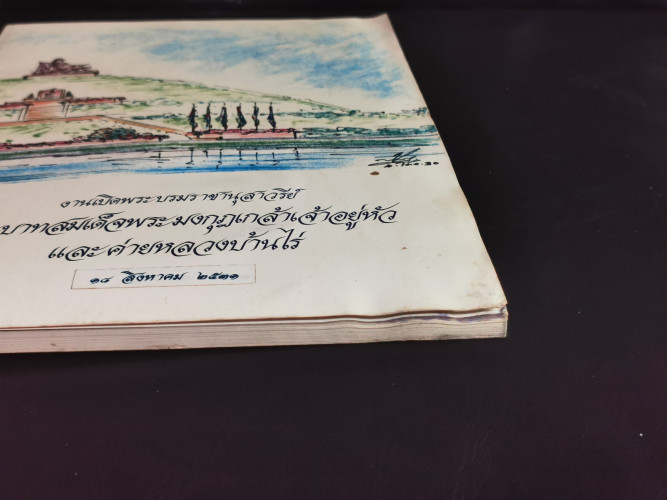 งานเปิดพระบรมราชานุสาวรีย์
บาทสมเด็จพระมงกุฎเกล้าเจ้าอยู่หัว
และค่ายหลวงบ้านไร่
๑๘ สิงหาคม ๒๕๓๑